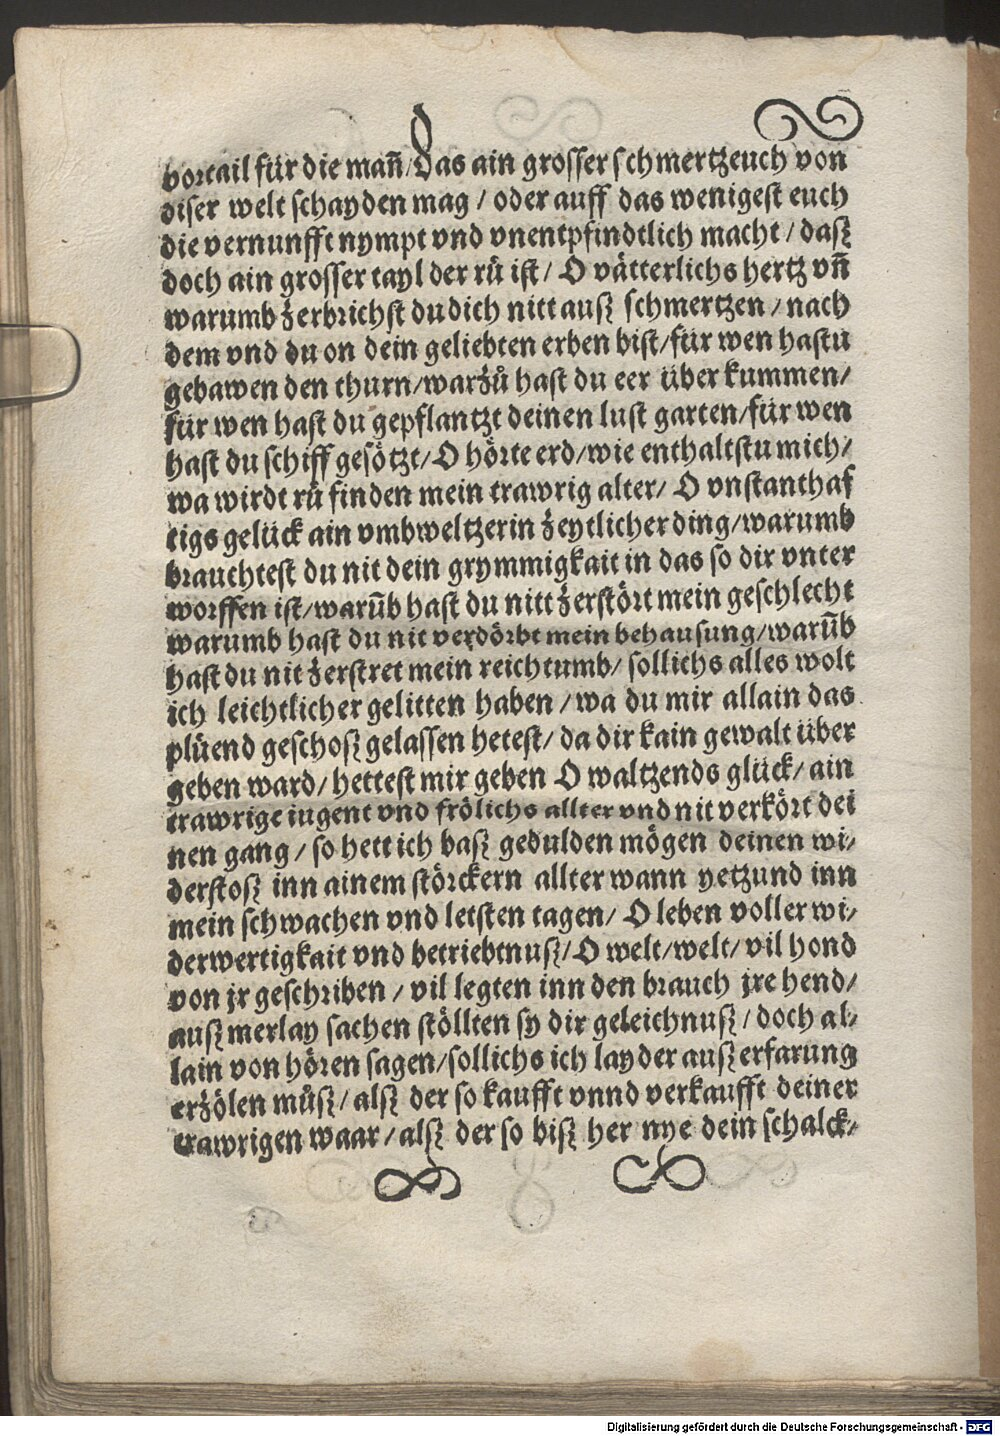 vortail für die mañ/Das ain grosser schmertzeuch von
diser welt schayden mag / oder auff das wenigest euch
die vernunfft nympt vnd vnentpfindtlich macht / dasz
doch ain grosser tayl der rů ist/ O vätterlichs hertz vñ
warumb zerbrichst du dich nitt ausz schmertzen / nach
dem vnd du on dein geliebten erben bist/für wen hastu
gebawen den thurn/warzů hast du eer über kummen/
für wen hast du gepflantzt deinen lust garten/für wen
hast du schiff gesötzt/ O hörte erd/wie enthaltstu mich/
wa wirdt rů finden mein trawrig alter/ O vnstanthaf
tigs gelück ain vmbweltzerin zeytlicher ding/warumb
brauchtest du nit dein grymmigkait in das so dir vnter
worffen ist/warūb hast du nitt zerstört mein geschlecht
warumb hast du nit verdörbt mein behausung/warūb
hast du nit zerstret mein reichtumb/ sollichs alles wolt
ich leichtlicher gelitten haben / wa du mir allain das
plüend geschosz gelassen hetest/ da dir kain gewalt über
geben ward/ hettest mir geben O waltzends glück/ ain
trawrige iugent vnd frölichs allter vnd nit verkört dei
nen gang / so hett ich basz gedulden mögen deinen wi/
derstosz inn ainem störckern allter wann yetzund inn
mein schwachen vnd letsten tagen/ O leben voller wi/
derwertigkait vnd betriebtnusz/ O welt/welt/ vil hond
von jr geschriben / vil legten inn den brauch jre hend/
ausz merlay sachen stöllten sy dir geleichnusz / doch al/
lain von hören sagen/sollichs ich layder ausz erfarung
erzölen můsz/ alsz der so kaufft vnnd verkaufft deiner
trawrigen waar / alsz der so bisz her nye dein schalck/
Digitalisierung gefördert durch die Deutsche Forschungsgemeinschaft - DFG